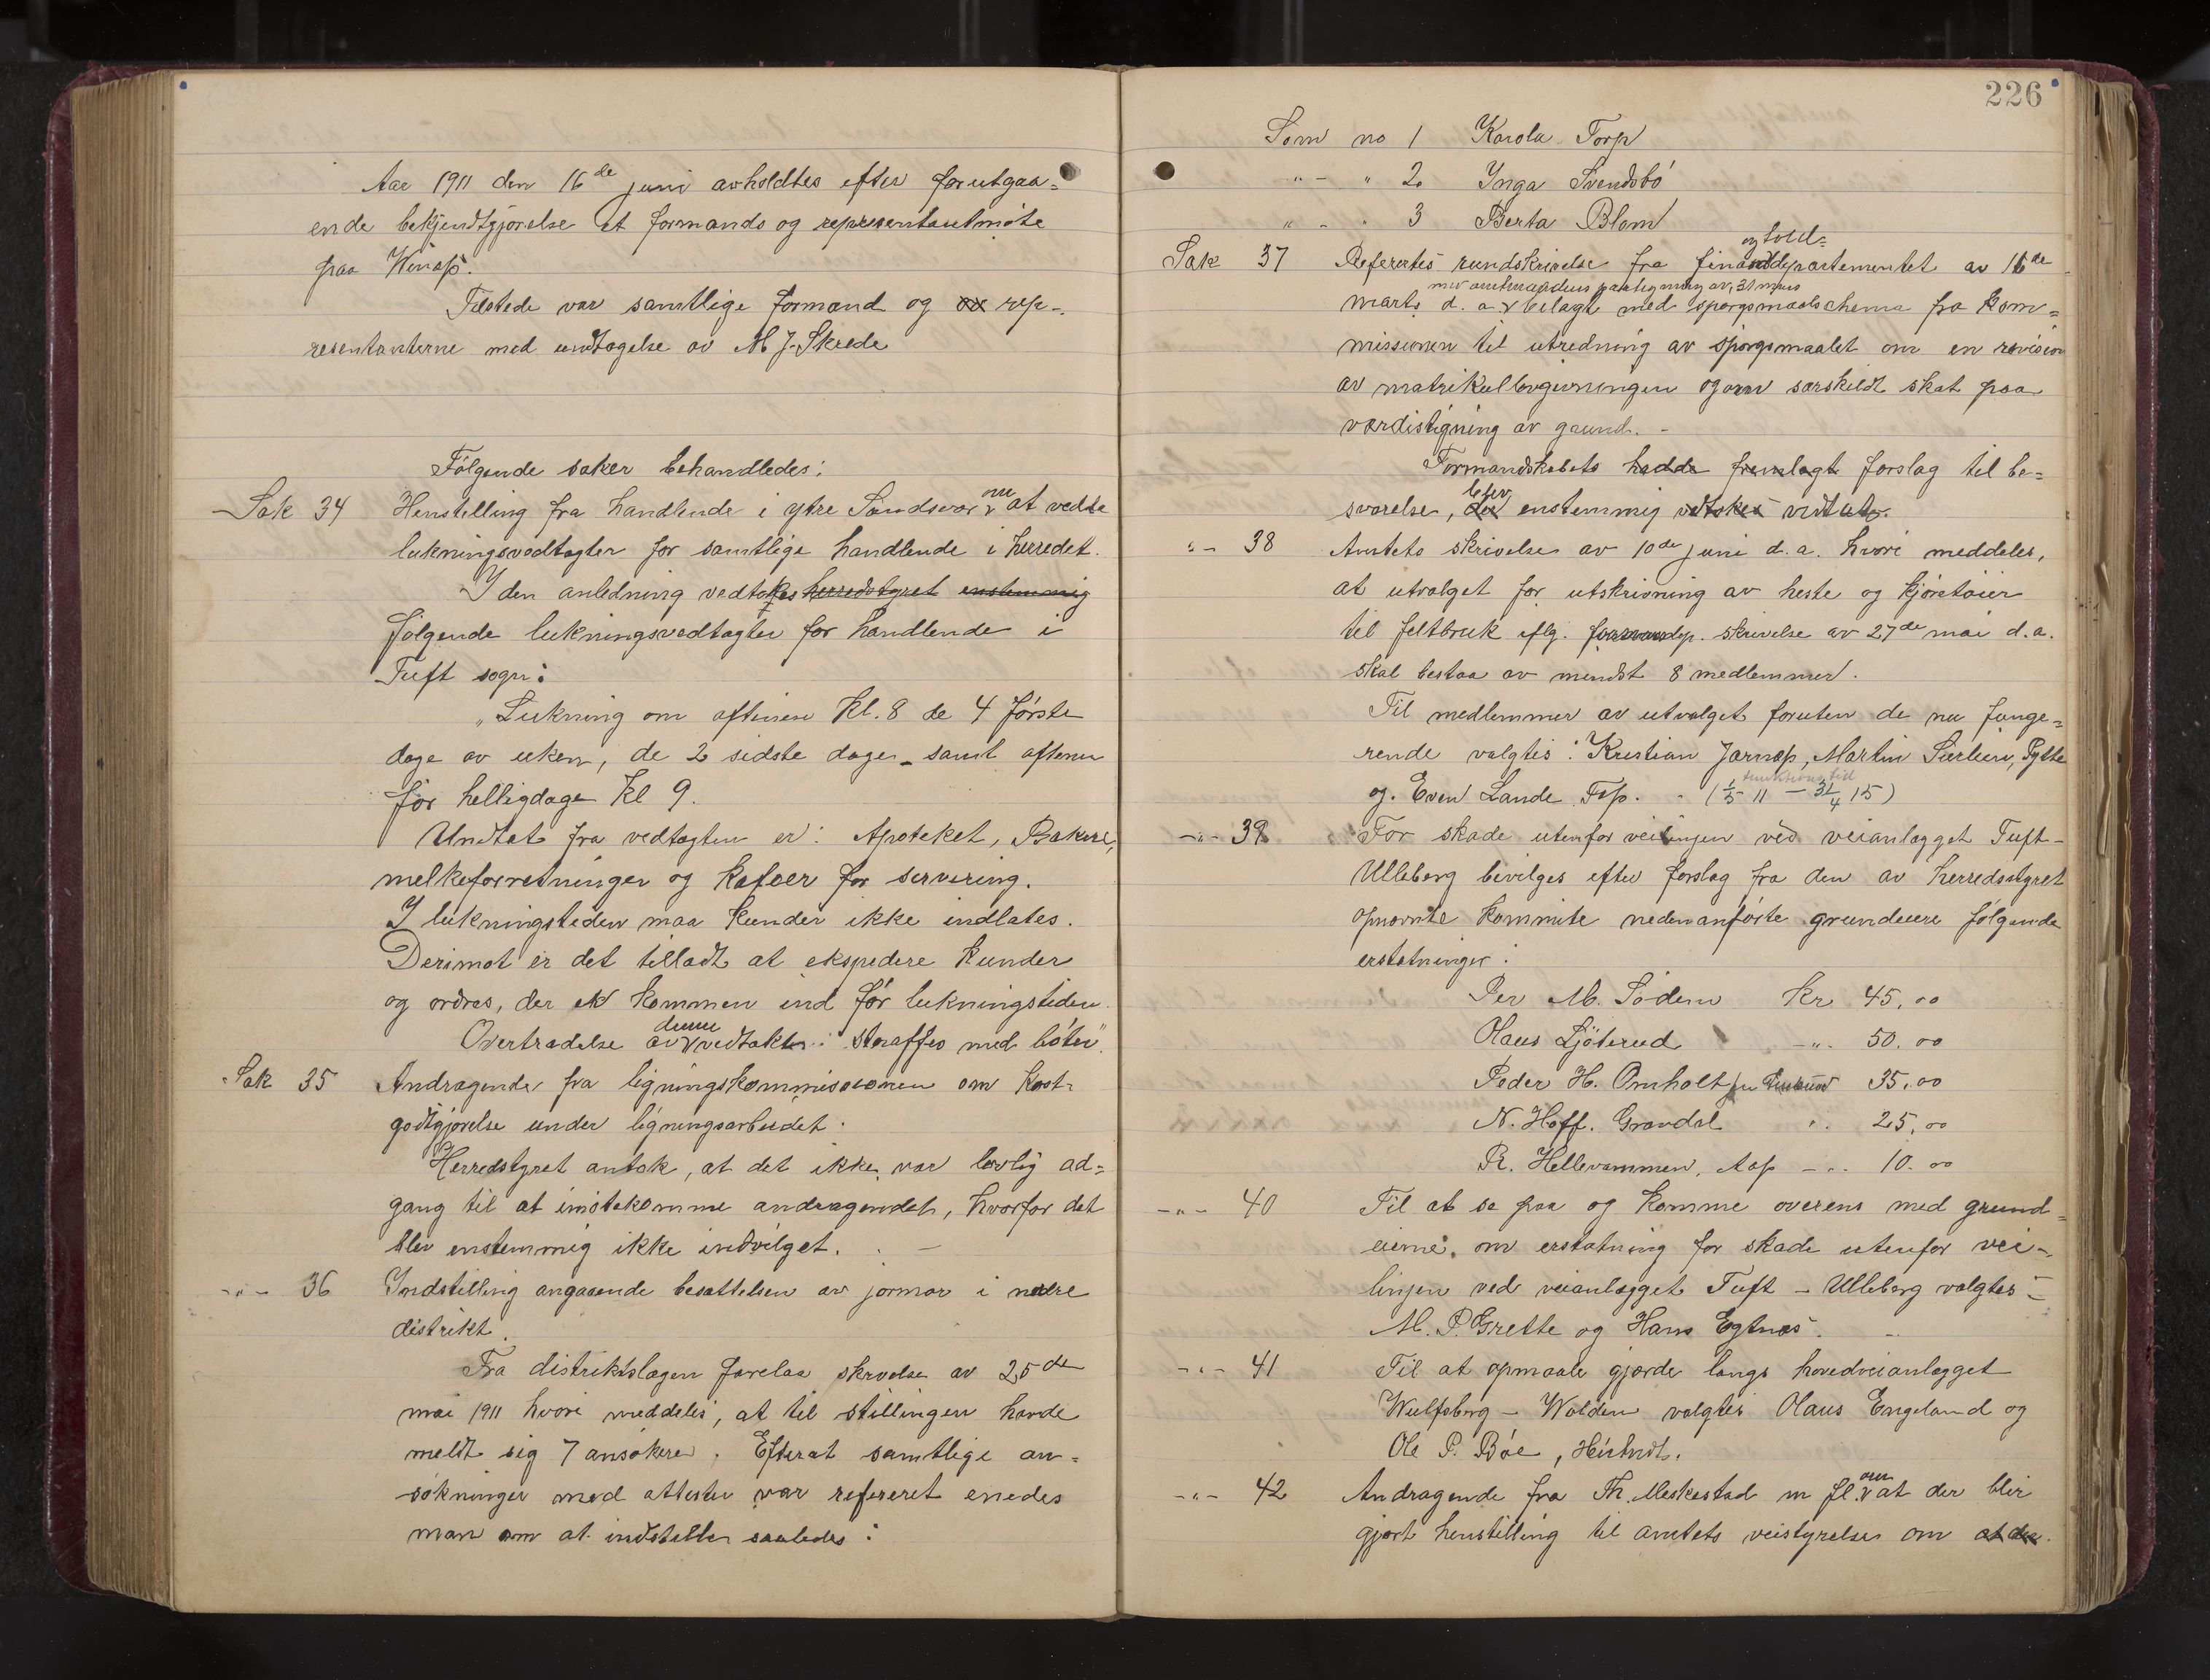 Aar 1911 den 16de juni avholdtes efter forutgaa=
ende bekjendtgjørelse et formands og representantmøte
paa
Tilstede var samtlige formænd og rep-
resentanterne med undtagelse av M J. Skrede
Følgende saker behandledes:
Sak 34 Henstilling fra handlende i ytre Sandsvær om at vedta
lukningsvedtægter for samtlige handlende i herredet.
I den anledning vedtokes herredstyret enstemmig
følgende lukningsvedtægter for handlende i
Tuft sogn:
"Lukning om aftenen kl. 8 de 4 første
dage av uken, de 2 sidste dage samt aftenen
før helligdage kl 9.
Undtat fra vedtægten er: Apoteket, Bakere,
melkeforretninger og kafeer for servering.
I lukningstiden maa kunder ikke indlates.
Derimot er det tilladt at ekspedere kunder
og ordres, der er kommen ind før lukningstiden.
Overtrædelse av denne vedtækt straffes med bøter".
Sak 35 Andragende fra ligningskommissionen om kost-
godtgjørelse under ligningsarbeidet.
Herredstyret antok, at det ikke var lovlig ad=
gang til at imøtekomme andragendet, hvorfor det
blev enstemmig ikke indvilget.
-"- 36 Indstilling angaaende besættelsen av jormor i nedre
distrikt.
Fra distriktslægen forelaa skrivelse av 25de
mai 1911 hvori meddeles, at til stillingen havde
meldt sig 7 ansøkere. Efterat samtlige an=
søkninger med attester var refereret enedes
man om at indstille saaledes:
226
Som no 1 Karola Torp
" - " 2 Ynga Svendsbø
" - " 3 Berta Blom
Sak 37 Refereres rundskrivelse fra finans og told-departementet av 16de
med amtmandens paategning av 31 mars
marts d. a. bilagt med spørgsmaalschema fra kom=
missionen til utredning av spørgsmaalet om en revision
av matrikullovgivningen og om særskildt skat paa
værdistigning av grund. -
Formandskabets hadde fremlagt forslag til be=
svarelse, blev enstemmig vedtokes vedtat.
"- 38 Amtets skrivelse av 10de juni d.a. hvori meddeles,
at utvalget for utskrivning av heste og kjøretøier
til feltbruk iflg. skrivelse av 27de mai d.a.
skal bestaa av mindst 8 medlemmer.
Til medlemmer av utvalget foruten de nu funge=
rende valgtes: Kristian Jarnæs, Martin
og Even Lande (1/5 11 - 31/4 15)
funktionstid
-"- 39 For skade utenfor veilinjen ved veianlægget Tuft-
Ulleberg bevilges efter forslag fra den av herredsstyret
opnævnte komite nedenanførte grundeiere følgende
erstatninger:
Per M. Sødem kr 45.00
Olaus Ljøterud -"- 50.00
Peder H. Omholt 35.00
N. Hoff. Gravdal " 25.00
R. Hellevammen, Aas -"- 10.00
-"- 40 Til at se paa og komme overens med grund=
eierne, om erstatning for skade utenfor vei-
linjen ved veianlægget Tuft - Ulleberg valgtes
M. P. Grette og Hans Egtnæs.
-"- 41 Til at opmaale gjærde langs hovedveianlægget
Wulfsberg - Wolden valgtes Olaus Engeland og
Ole P. Bøe,
-"- 42 Andragende fra Th. Meskestad m fl. om at der blir
gjort henstilling til amtets veistyrelse om at der